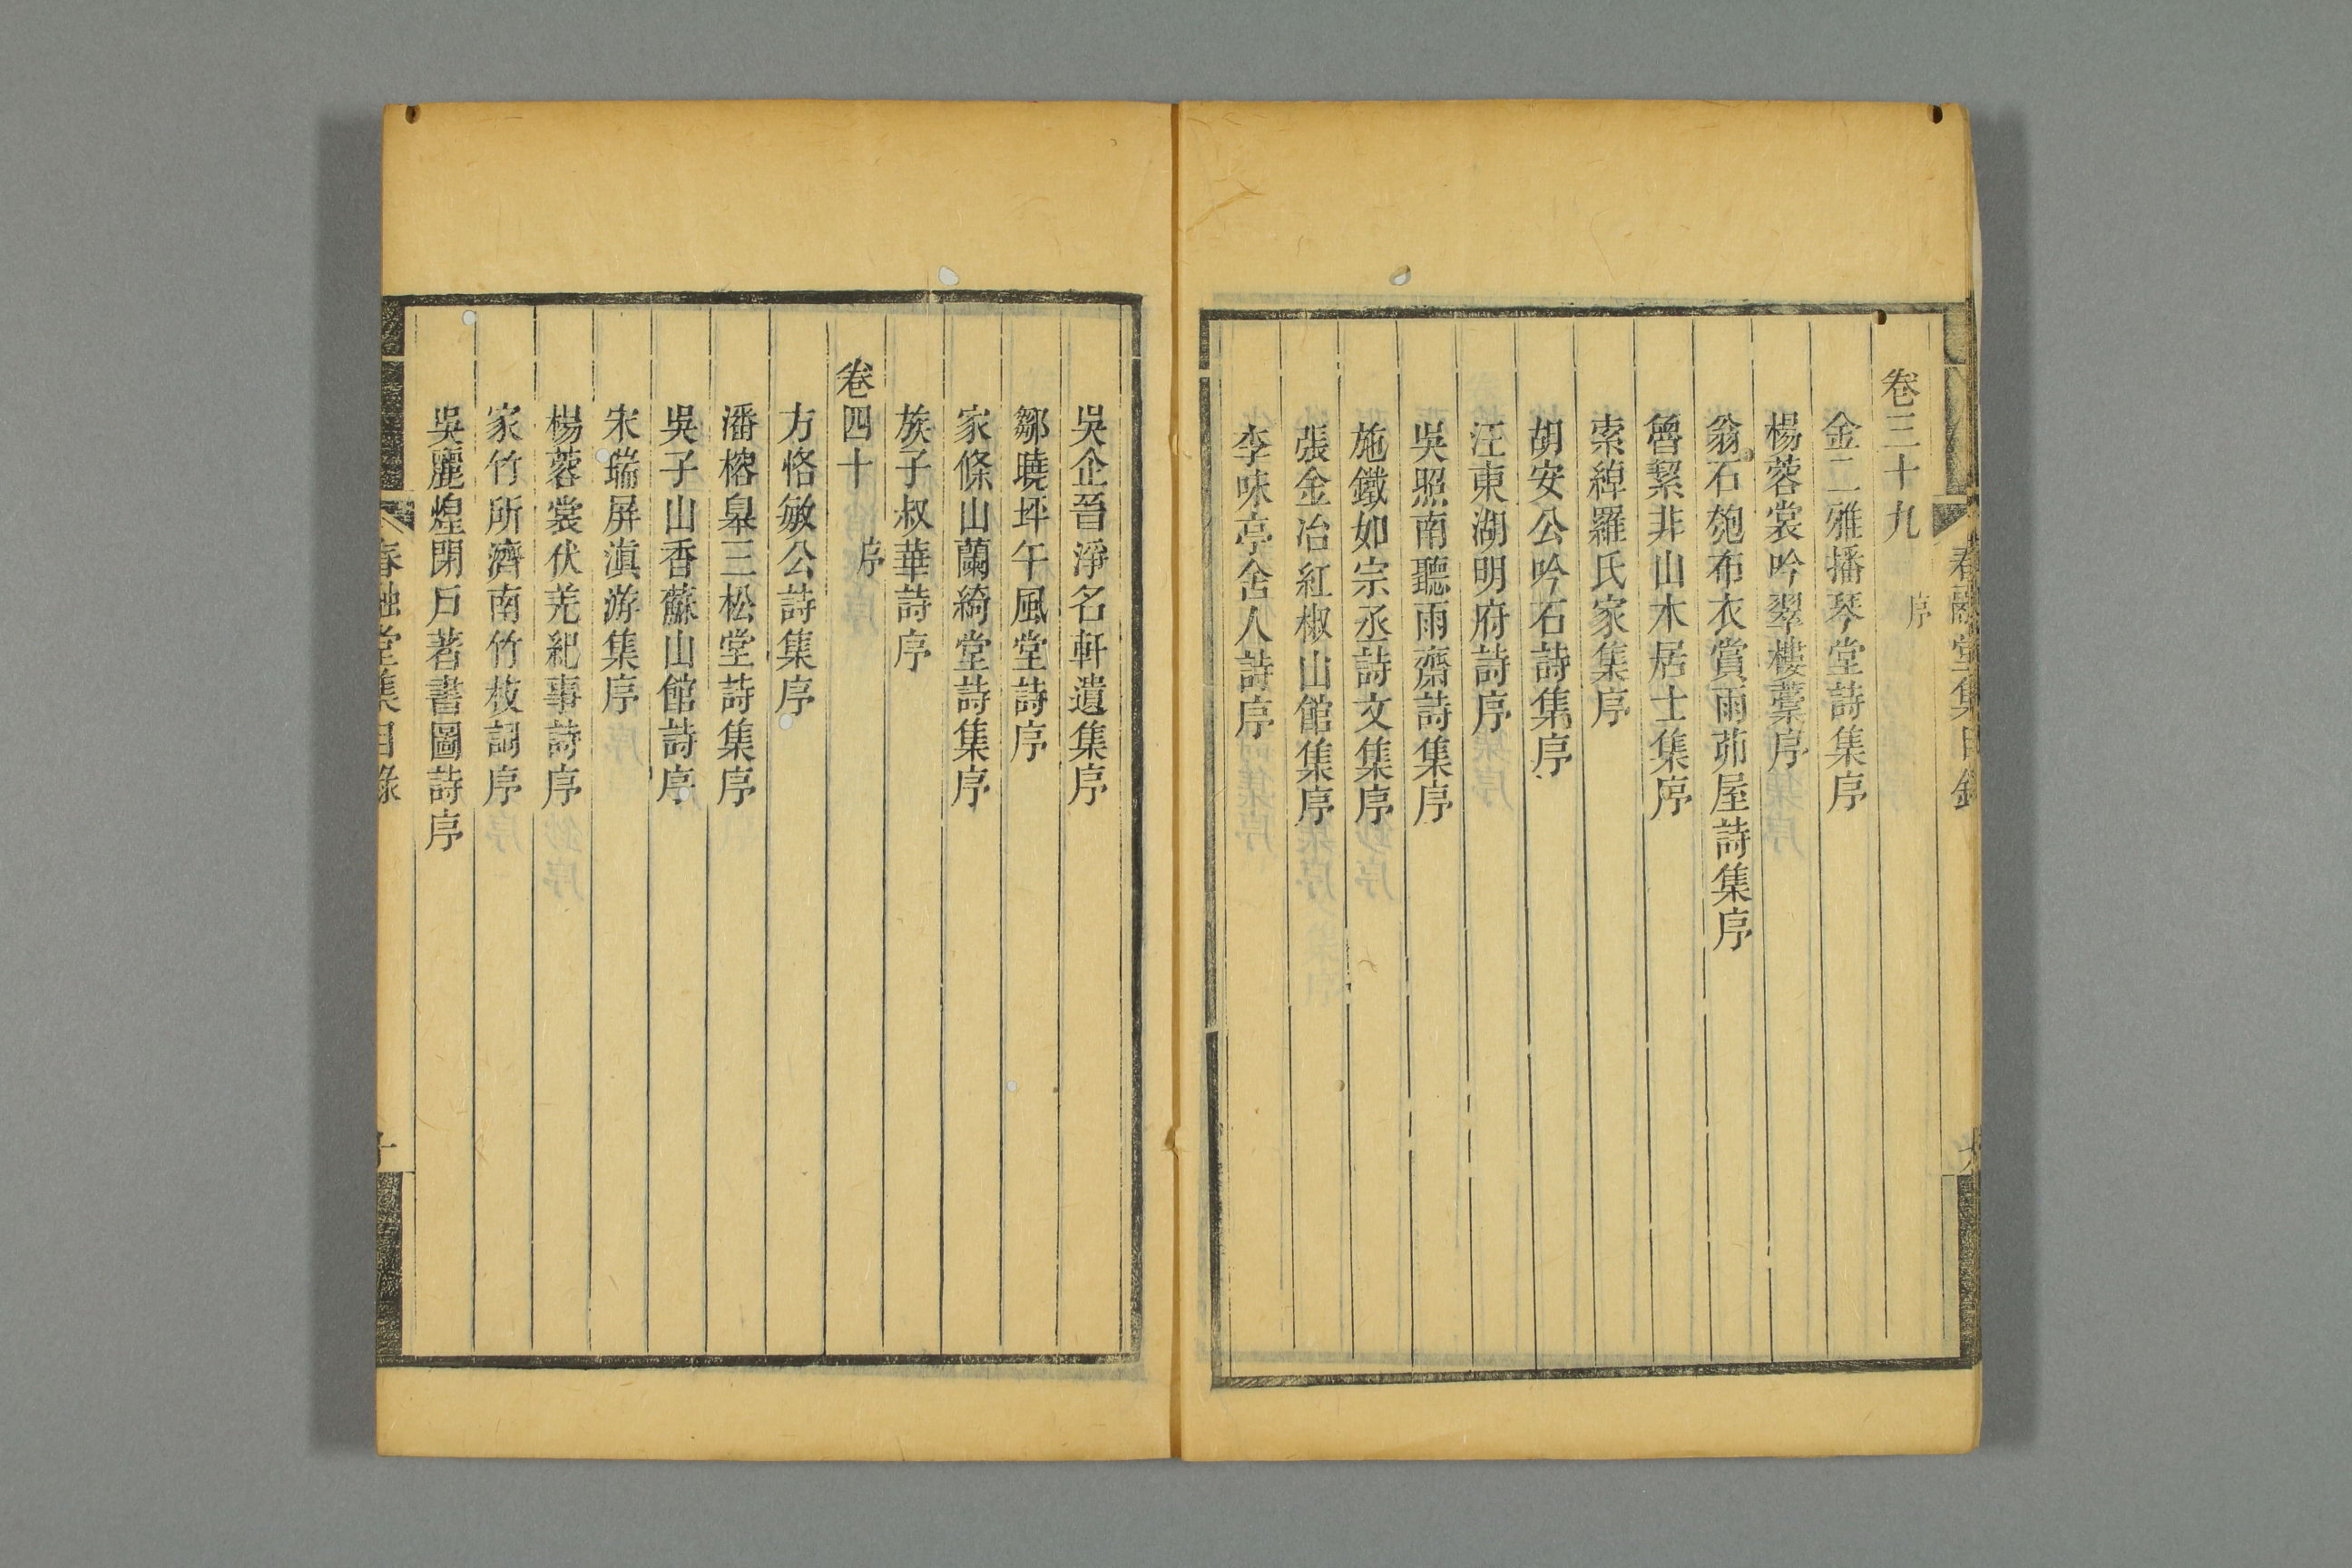 春融堂集目錄
卷三十九 序
金二雅播琴堂詩集序
楊蓉裳吟翠樓藁序
翁石瓠布衣賞雨茆屋詩集序
魯絜非山木居士集序
索綽羅氏家集序
胡安公吟石詩集序
汪東湖明府詩序
吳照南聽雨齋詩集序
施鐵如宗丞詩文集序
張金冶紅椒山館集序
李味亭舍人詩序
吳企晉淨名軒遺集序
鄒曉坪午風堂詩序
家條山蘭綺堂詩集序
族子叔華詩序
卷四十 序
方恪敏公詩集序
潘榕皋三松堂詩集序
吳子山香蘇山館詩序
宋瑞屏滇游集序
楊蓉裳伏羌紀事詩序
家竹所濟南竹枝詞序
吳麗煌閉戶著書圖詩序
春融堂集目錄